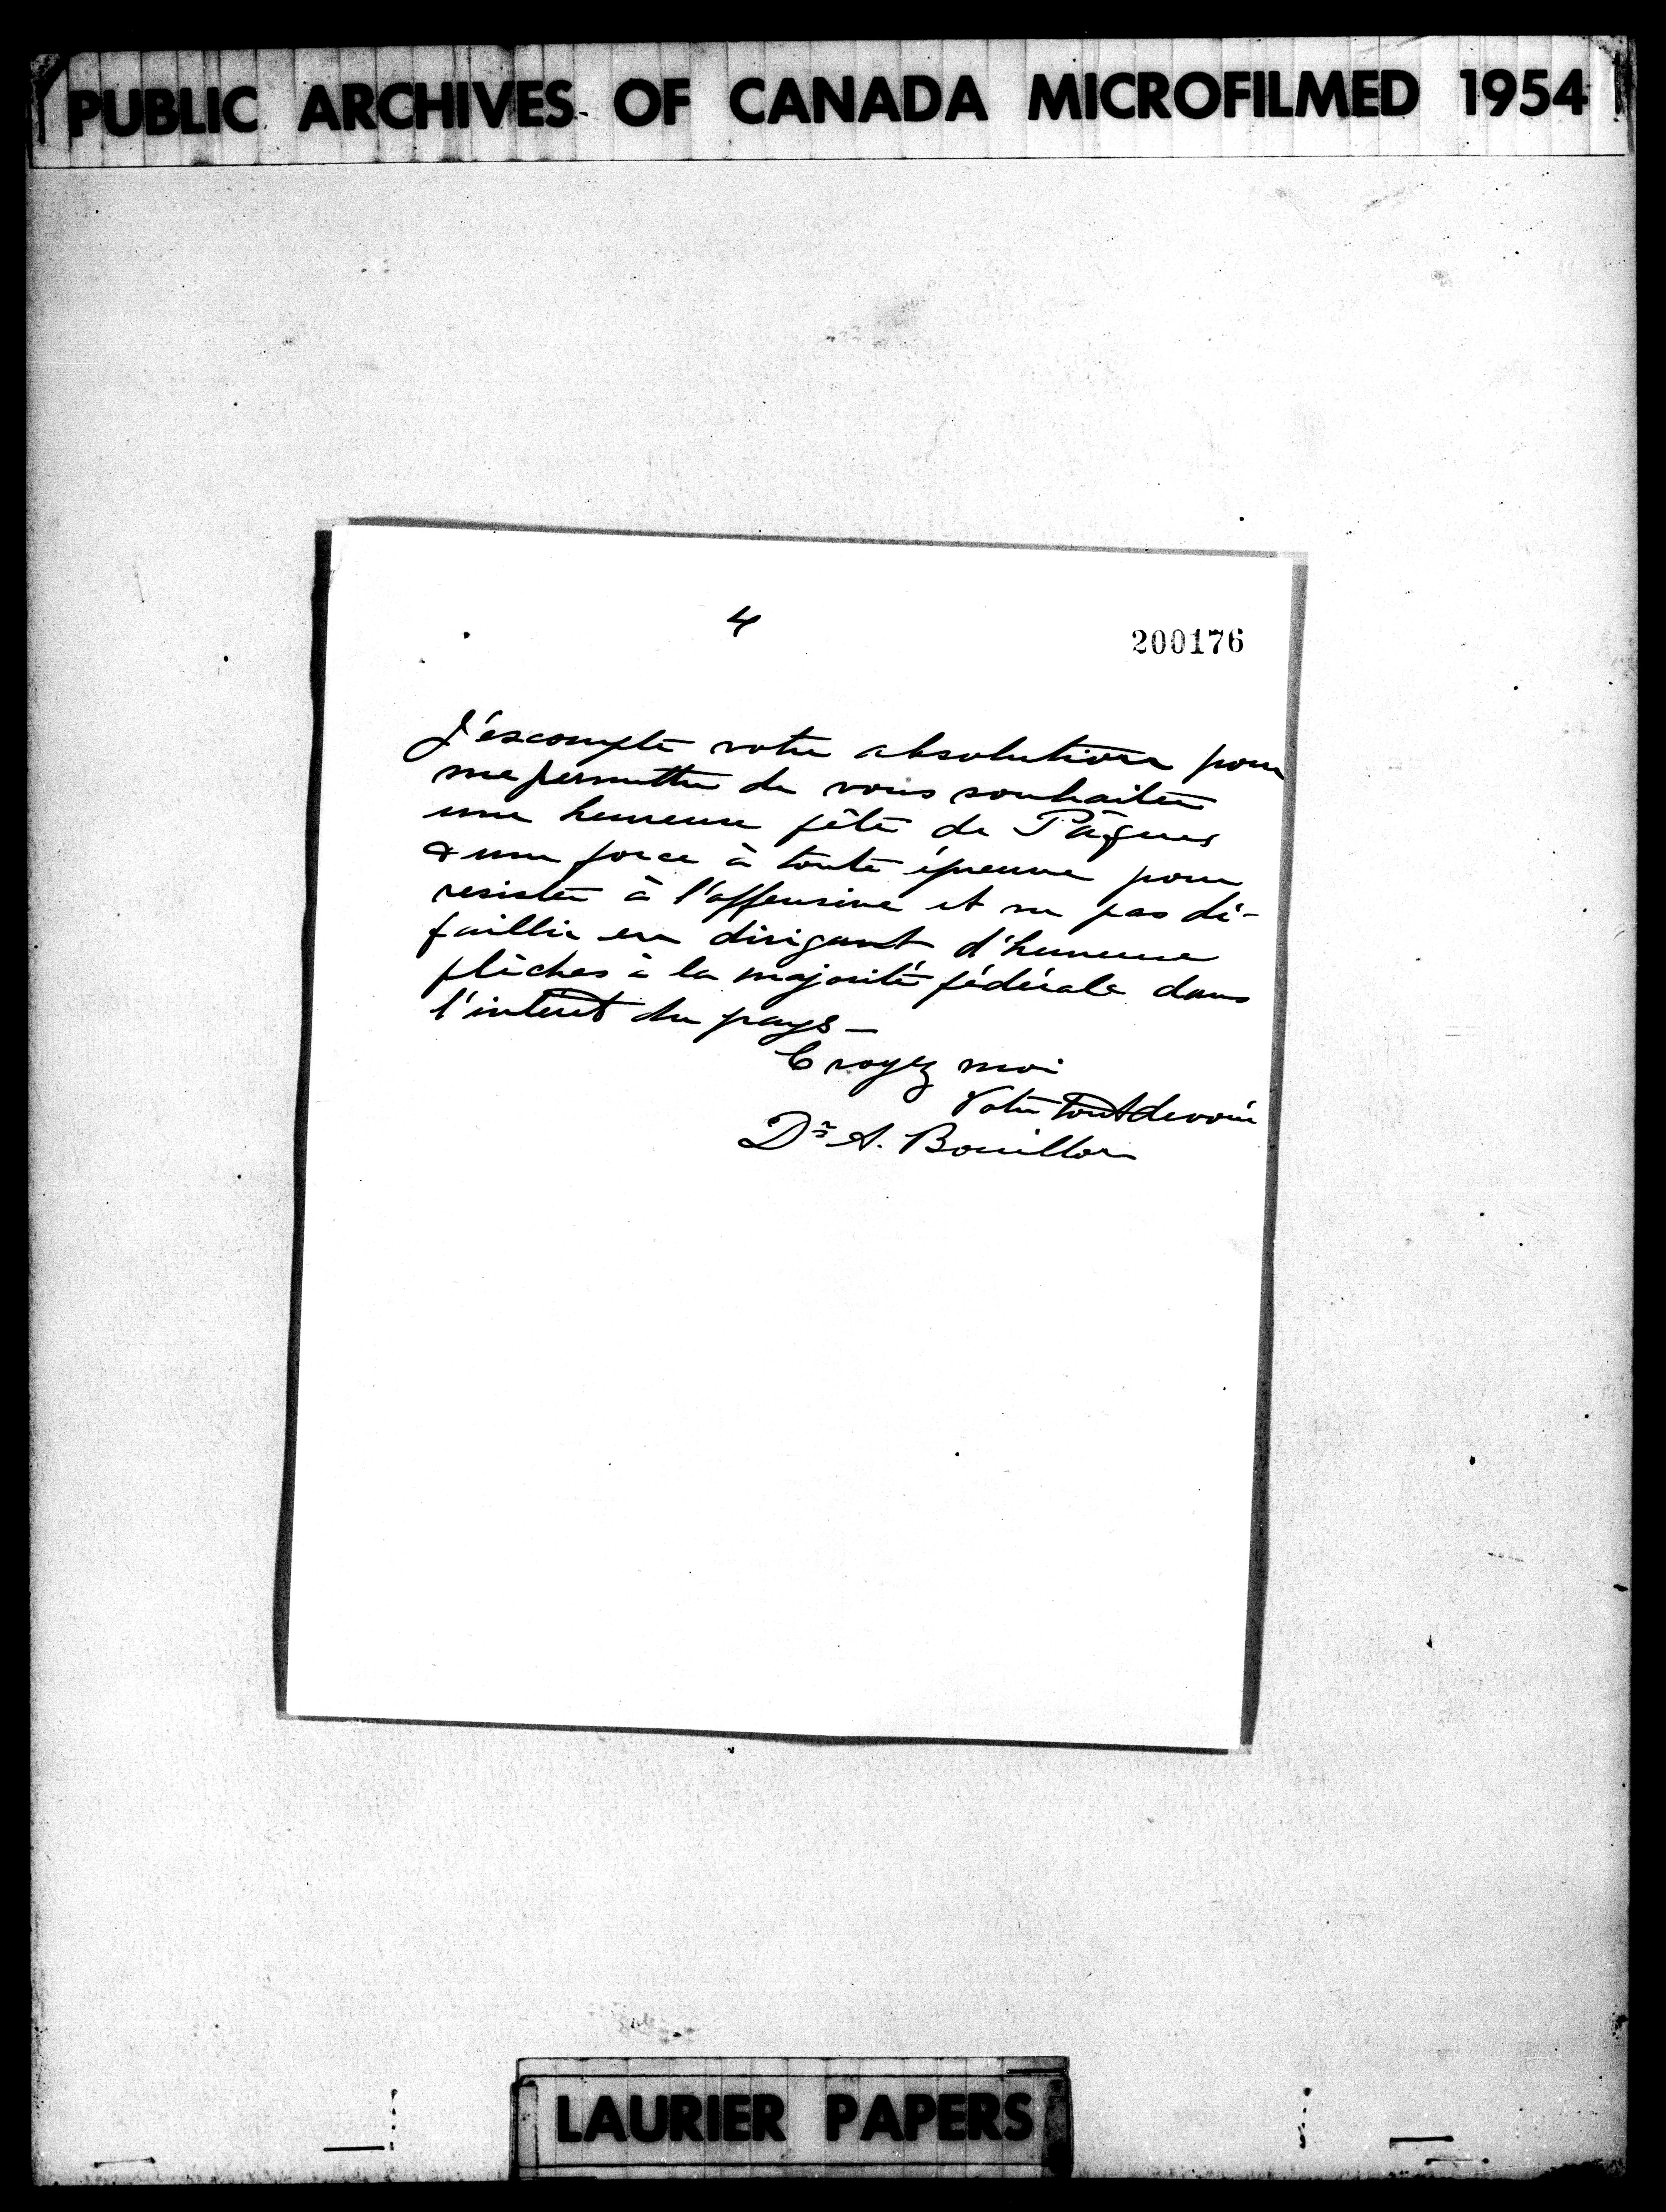 PUBLIC ARCHIVES OF CANADA MICROFILMED 1954
4
200176
J'escompte votre absolution pour
me permettre de vous souhaiter
une heureuse fête de Pâques
& une force à toute épreuve pour
resister à l'offensive et ne pas dé-
faillir en dirigeant d'heureuse
flêches à la majorité fédérale dans
l'intérêt du pays -
Croyez moi
Votre tout devoué
Dr A. Bouillon
LAURIER PAPERS